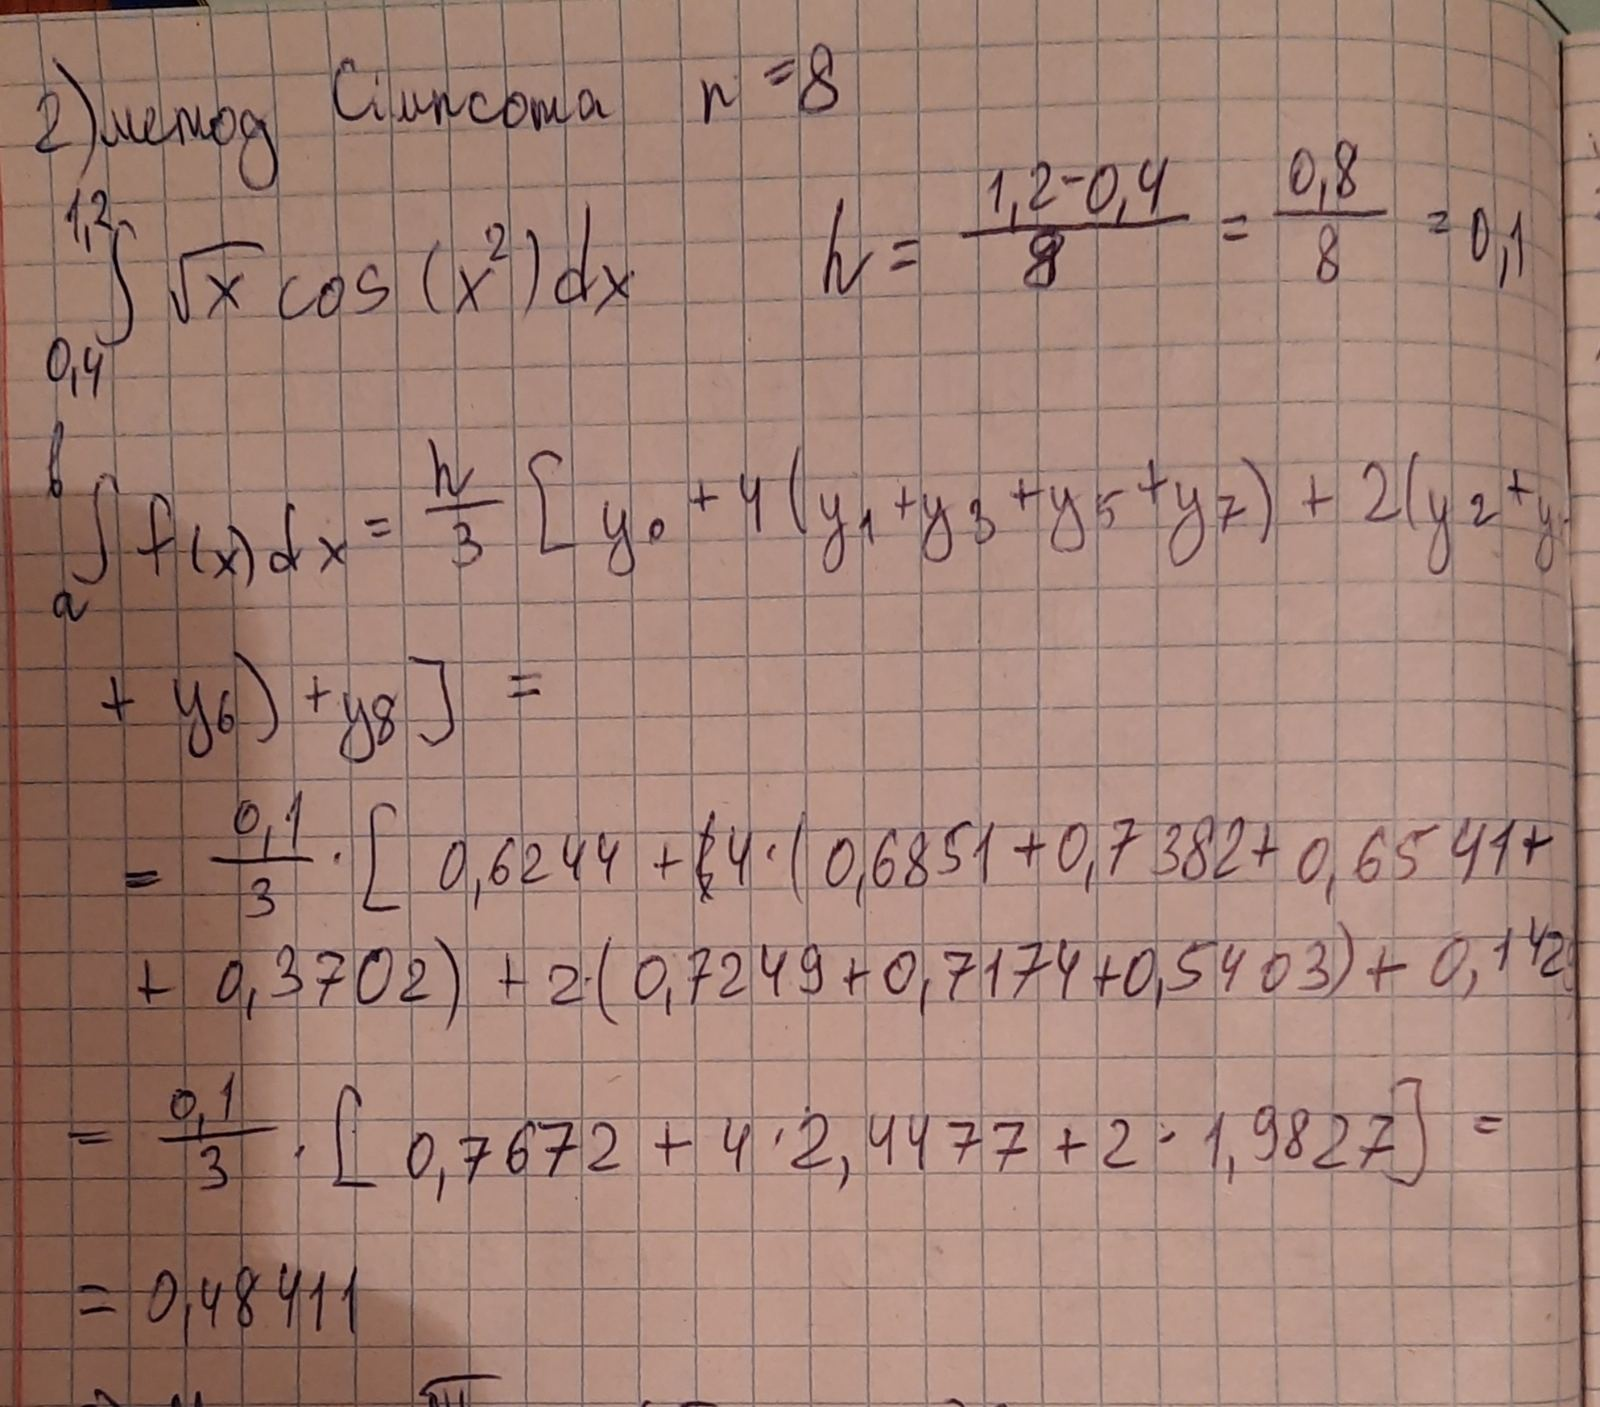 2) метод Сімпсона n = 8
∫_{0,4}^{1,2} √x cos (x²) dx h = (1,2-0,4)/8 = 0,8/8 = 0,1
∫_a^b f(x) dx = h/3 [ y₀ + 4 (y₁ + y₃ + y₅ + y₇) + 2 (y₂ + y
+ y₆) + y₈ ] =
= 0,1/3 · [ 0,6244 + 4 · ( 0,6851 + 0,7382 + 0,6541 +
+ 0,3702) + 2 · ( 0,7249 + 0,7174 + 0,5403) + 0,142
= 0,1/3 · [ 0,7672 + 4 · 2,4477 + 2 · 1,9827] =
= 0,48411